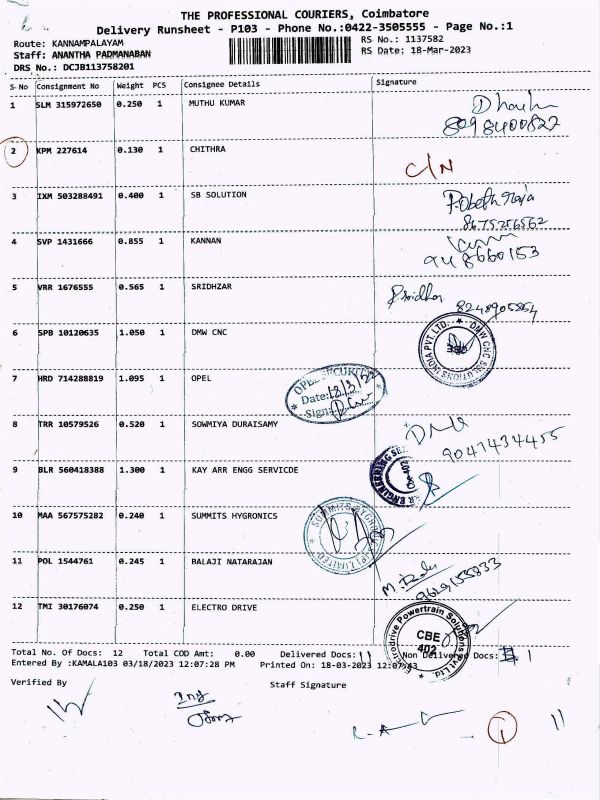 THE PROFESSIONAL COURIERS, Coimbatore
Delivery Runsheet - P103 - Phone No.:0422-3505555 - Page No.:1
Route: KANNAMPALAYAM RS No.: 1137582
Staff: ANANTHA PADMANABAN RS Date: 18-Mar-2023
DRS No.: DCJB113758201
S-No Consignment No Weight PCS Consignee Details Signature
1 SLM 315972650 0.250 1 MUTHU KUMAR
8098400827
2 KPM 227614 0.130 1 CHITHRA
C/N
3 IXM 503288491 0.400 1 SB SOLUTION
8675256562
4 SVP 1431666 0.855 1 KANNAN
5 VRR 1676555 0.565 1 SRIDHZAR
8248905854
6 SPB 10120635 1.050 1 DMW CNC
DMW CNC SOLUTIONS INDIA PVT LTD.
7 HRD 714288819 1.095 1 OPEL
Date: 18/3/23
Sign:
8 TRR 10579526 0.520 1 SOWMIYA DURAISAMY
9041434455
9 BLR 560418388 1.300 1 KAY ARR ENGG SERVICDE
10 MAA 567575282 0.240 1 SUMMITS HYGRONICS
SUMMITS HYGRONICS
LIMITED
11 POL 1544761 0.245 1 BALAJI NATARAJAN
9629155833
12 TMI 30176074 0.250 1 ELECTRO DRIVE
Electrodrive Powertrain Solutions Pvt Ltd.
CBE
402
Total No. Of Docs: 12 Total COD Amt: 0.00 Delivered Docs: 11 Non Delivered Docs: 1
Entered By :KAMALA103 03/18/2023 12:07:28 PM Printed On: 18-03-2023 12:07:43
Verified By Staff Signature
1 11